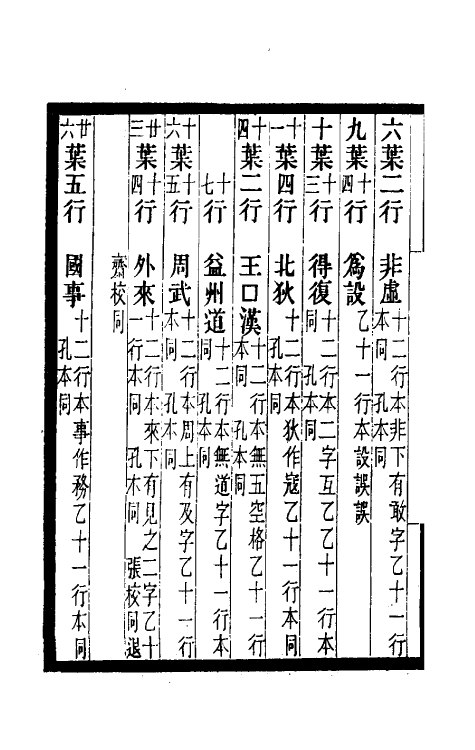 六葉二行　非虛　十二行本非下有敢字乙十一行本同　孔本同
九葉十四行　爲設　乙十一行本設誤誤
十葉十三行　得復　十二行本二字互乙乙十一行本同　孔本同
十一葉四行　北狄　十二行本狄作寇乙十一行本同　孔本同
十四葉二行　王口漢　十二行本無五空格乙十一行本同　孔本同
十七行　益州道　十二行本無道字乙十一行本同　孔本同
十六葉十五行　周武　十二行本周上有及字乙十一行本同　孔本同
廿三葉十四行　外來　十二行本來下有見之二字乙十一行本同　孔本同　張校同退
齋校同
廿六葉五行　國事　十二行本事作務乙十一行本同　孔本同